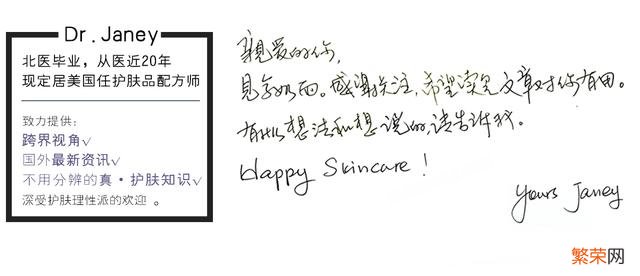 Dr. Janey
北医毕业，从医近20年
现定居美国任护肤品配方师
致力提供：
跨界视角✓
国外最新资讯✓
不用分辨的真·护肤知识✓
深受护肤理性派的欢迎 。
亲爱的你，
见字如面。感谢关注，希望读完文章对你有用。
有什么想法和想说的，请告诉我。
Happy Skincare !
yours Janey
繁荣网